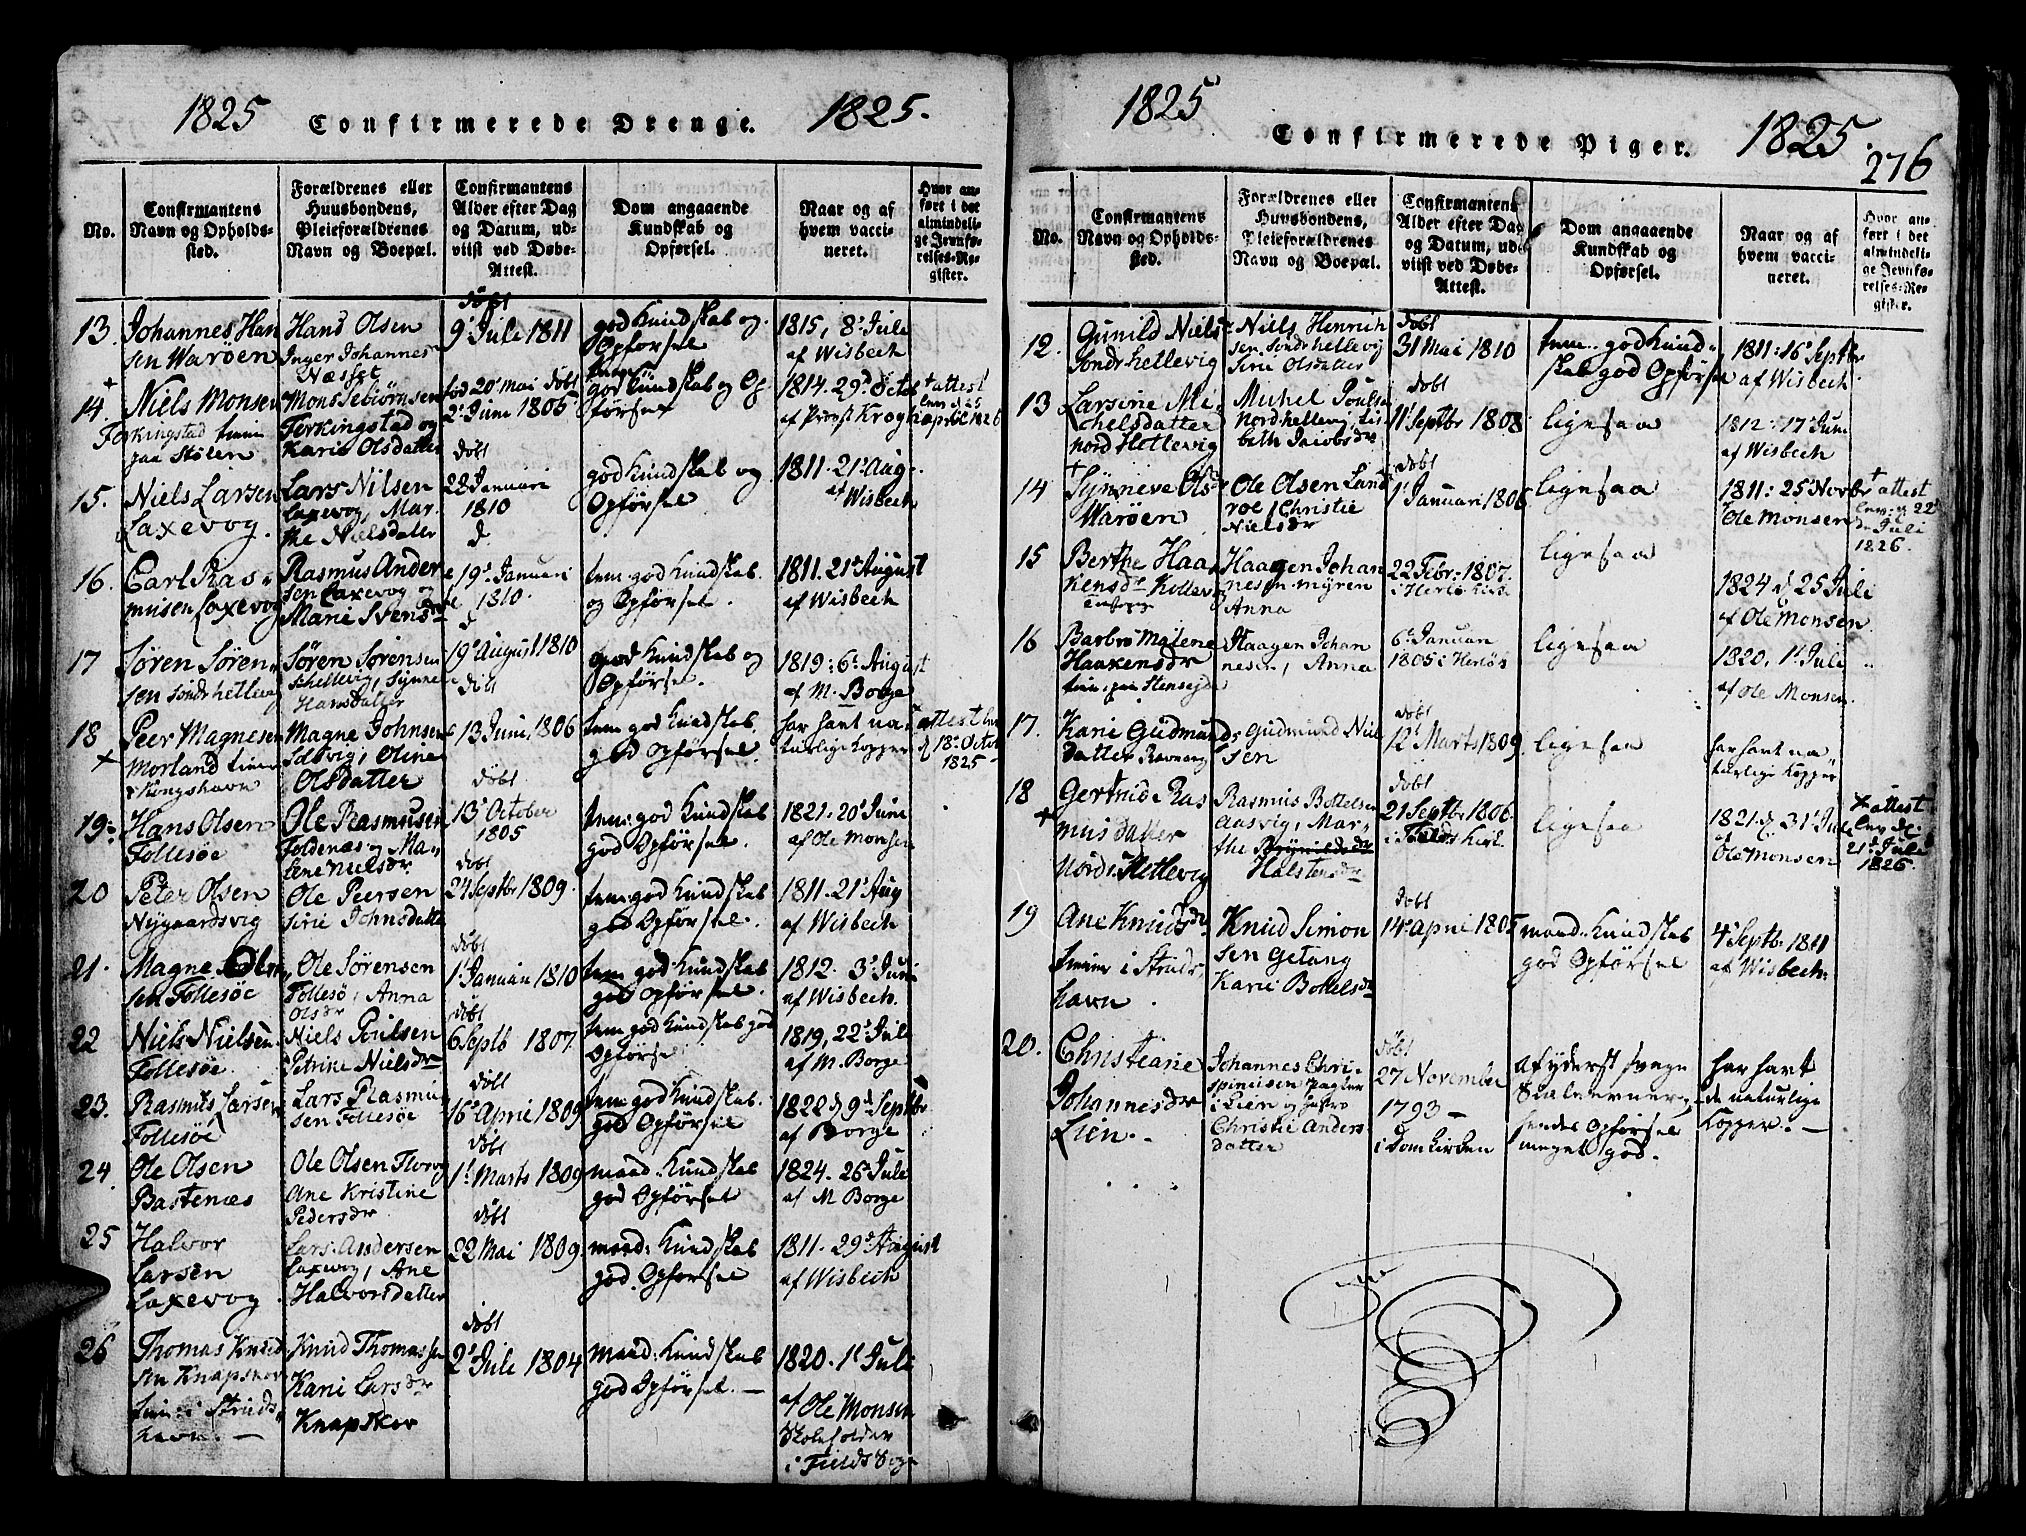 1825 Confirmerede Drenge. 1825.
No.
Confirmantens
Navn og Opholds-
sted.
Forældrenes eller
Huusbondens,
Pleieforældrenes
Navn og Boepæl.
Confirmantens
Alder efter Dag
og Datum, ud-
viist ved Døbe-
Attest.
Dom angaaende
Kundskab og
Opførsel.
Naar og af
hvem vacci-
neret.
Hvor an-
ført i det
almindeli-
ge Jevnfø-
relses-Re-
gister.
13
Johannes Han
sen Warøen
Hans Olsen
Inger Johannes
Næsset
døbt
9d Jule 1811
god Kundskab og
Opførsel
1815, 8d Jule
af Wisbech
+
14.
Niels Monsen
Ferkingstad
paa Stølen
Ferkingstad og
Karie Olsdatter
fød 20d mai døbt
2d Juni 1806
god Kundskab og Op
førsel
1814. 29d Octob
af Provst Krog
+ attest
lev. d. 25
april 1826
15.
Niels Larsen
Laxevog.
Lars Nilsen
Laxevog, Mar-
the Nielsdatter
døbt
28 Januari
1810
god Kundskab og
Opførsel
1811. 21d Aug.
af Wisbech
16.
Carl Ras-
musen Laxevog
Rasmus Ander
sen Laxevog og
Marie Svensdr
d.
19d Januari
1810.
tem. god Kundskab.
og Opførsel.
1811. 21d August
af Wisbech
17
Søren Søren-
sen Søndrhetlevig
Søren Sørensen
Shetlevig, Synne
Hansdatter
d
19d August 1810
god Kundskab og
Opførsel.
1819. 6d August
af M. Borge
18
+
Peer Magnesen
Morland
Kongshavn
Magne Johnsen
Oline
Olsdatter
døbt
13 Juni, 1806
tem god Kundskab,
god Opførsel.
har havt na-
turlige Kopper
attest lev
d 18d Octob
1825 –
19.
Hans Olsen
Follesøe
Ole Rasmusen
Foldenæs og Ma-
lene Nielsdr.
døbt
13d October
1805
tem: god Kundskab
god Opførsel.
1821. 20d Juni
af Ole Monsen
20
Peter Olsen
Nygaardsvig
Ole Peersen
Sirie Johnsdatter
døbt
24 Septbr 1809.
tem: god Kundskab
god Opførsel.
1811. 21d Aug
af Wisbech
21.
Magne Ol-
sen Follesøe
Ole Sørensen
Follesø, Anna
Olsdr
døbt
1d Januari 1810
tem god Kundskab
god Opførsel.
1812. 3d Juni
af Wisbech.
22
Niels Nielsen
Follesøe.
Niels Poulsen
Petrine Nielsdr
døbt
6 Septb 1807.
tem. god Kundskab god
Opførsel
1819, 22d Jule
af M. Borge
23.
Rasmus Larsen
Follesøe
Lars Rasmu
sen Follesøe
døbt
16d Aprie 1809
tem god Kundskab.
god Opførsel
1822 d 9d Septbr
af Borge
24.
Ole Olsen
Bastenæs
Ole Olsen
Ane Kristine
Pedersdr
døbt
1d Marts 1809
maad. Kundskab
god Opførsel
1824. 26d Jule
af M Borge
25
Halvor
Larsen
Laxevog
Lars Andersen
Laxevog, Ane
Halvorsdatter
døbt
22 Mai 1809.
maad: Kundskab
god Opførsel
1811. 29d August
af Wisbech
26
Thomas Knud
sen Knapskor
i Struds-
havn. –
Knud Thomassen
Karie Larsdr
Knapskor
døbt
2d Jule 1804
maad: Kundskab
god Opførsel. –
1820. 1d Juli
af Ole Monsen
Skoleholder
i Fields Sogn
1825 Confirmerede Piger. 1825.
276
No.
Confirmantens
Navn og Opholds-
sted.
Forældrenes eller
Huusbondens,
Pleieforældrenes
Navn og Boepæl.
Confirmantens
Alder efter Dag
og Datum, ud-
viist ved Døbe-
Attest.
Dom angaaende
Kundskab og
Opførsel.
Naar og af
hvem vacci-
neret.
Hvor an-
ført i det
almindeli-
ge Jevnfø-
relses-Re-
gister.
12.
Gunild Niels-
Søndrhetlevig
Niels Henrich
sen Søndrhetlevig
Sirie Olsdatter
døbt
31 Mai 1810
tem. god Kund-
skab god Opførsel
1811. 16d Septbr
af Wisbech
13
Larsine Mi-
chelsdatter
nord Hetlevig
Michel Poulsen
Nordhetlevig, Lis-
beth Jacobsdr
døbt
11d Septbr 1808
ligesaa
1812. 17d Juni
af Wisbech
14
+
Synneve Olsdr
Warøen
Ole Olsen Land
røe, Christie
Nielsdr
døbt
1d Januari 1806
ligesaa
1811. 25d Novbr
Ole Monsen
+ attest
lev. d 22
Juli
1826.
15
Berthe Haa-
kensdr
Haagen Johan
nesen myren
Anna
22 Febr. 1807.
i Herlø Kirk
ligesaa
1824 d 25 Juli
af Ole Monsen
16
Barbro Malene
Haakensdr
Haagen Johan
nesen, Anna
6d Januari
1805 i Herløe
ligesaa
1820, 1d Juli
af Ole Monsen
17.
Karie Gudmunds-
datter Ravnang
Gudmund Niel
sen
døbt
12d Marts 1809.
ligesaa
har havt na-
turlige Kopper
18
+
Gertrude Ras
musdatter
Nordr. Hetlevig
Rasmus Bottelsen
Aasvig, Mar-
the
Halstensdr
døbt
21 Septbr 1806.
i Kirk.
ligesaa
1821. d. 31d Jule
af
Ole Monsen
+ attest
lev. d.
21d Juli
1826.
19
Ane Knudsdr
i Struds-
havn.
Knud Simon
sen Getang
Karie Botelsdr
døbt
14d aprie 1805
maad. Kundskab
god Opførsel
4d Septbr 1811
af Wisbech.
20.
Christiane
Johannesdr
Lien..
Johannes Chri-
spiniusen
i Lien og
Christie Anders
datter
døbt
27 November
1793 –
i Domkirken
af yderst svage
Siælsevner,
hendes Opførsel
meget god.
har havt
de naturlige
Kopper. –